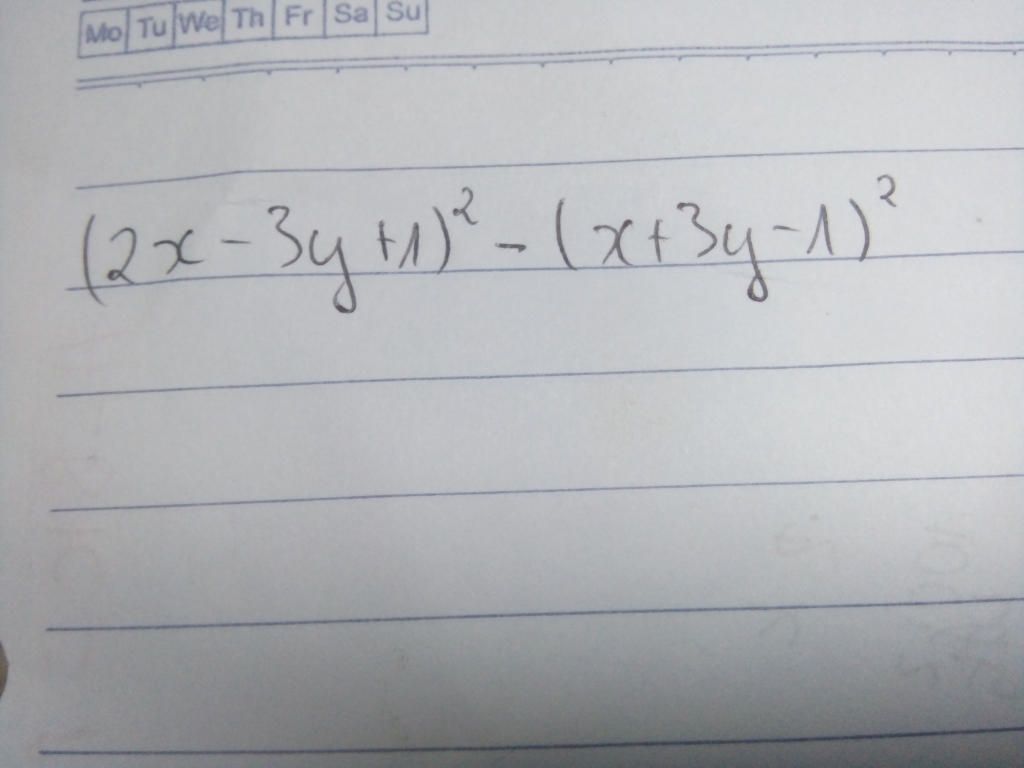 Mo Tu We Th Fr Sa Su
(2x - 3y + 1)² - (x + 3y - 1)²